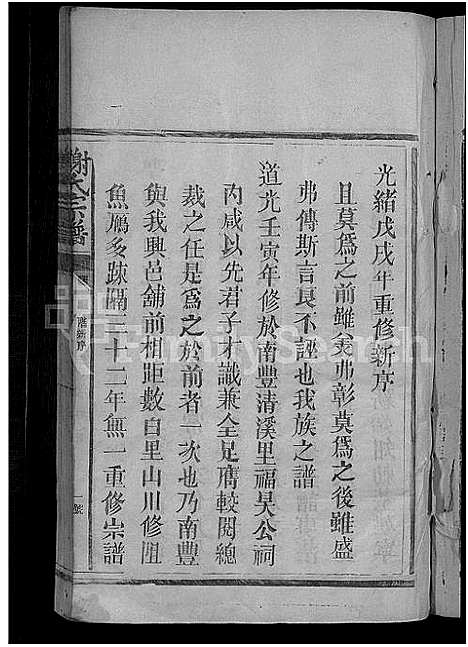 光緒戊戌年重修新序
且莫為之前雖美弗彰莫為之後雖盛
弗傳斯言良不誣也我族之譜
道光壬寅年修於南豐清溪里福昊公祠
內咸以先君子才識兼全足膺較閱總
裁之任是為之於前者一次也乃南豐
與我興邑舖前相距數百里山川修阻
魚鴈多疎隔三十二年無一重修宗譜
謝氏宗譜
新序
一號
FamilySearch